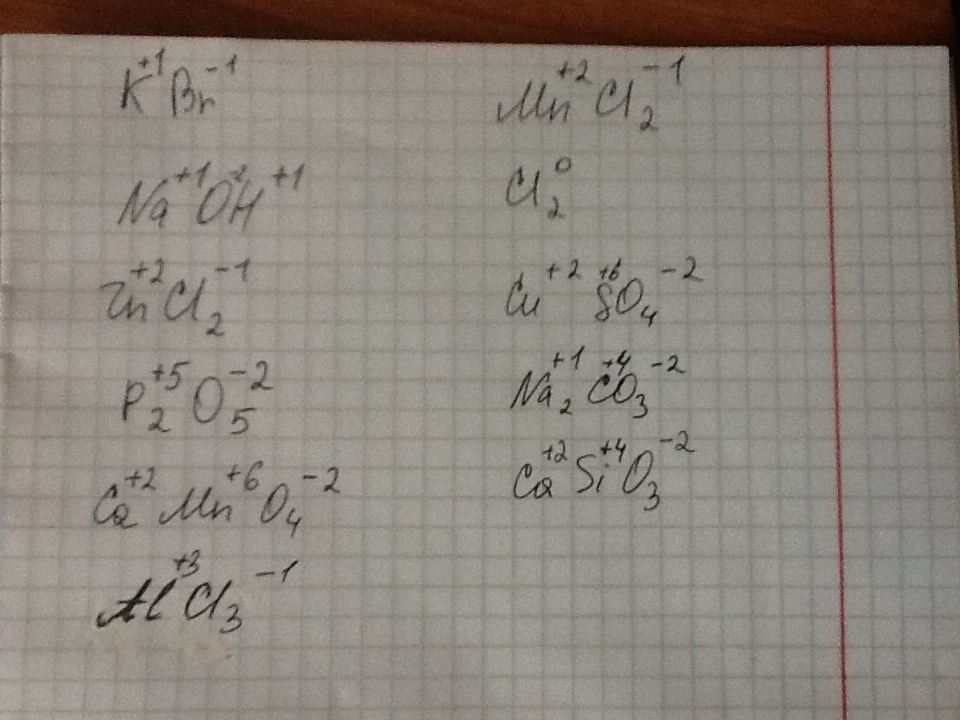 K⁺¹Br⁻¹
Na⁺¹O⁻²H⁺¹
Zn⁺²Cl₂⁻¹
P₂⁺⁵O₅⁻²
Ca⁺²Mn⁺⁶O₄⁻²
Al⁺³Cl₃⁻¹
Mn⁺²Cl₂⁻¹
Cl₂⁰
Cu⁺²S⁺⁶O₄⁻²
Na₂⁺¹C⁺⁴O₃⁻²
Ca⁺²Si⁺⁴O₃⁻²